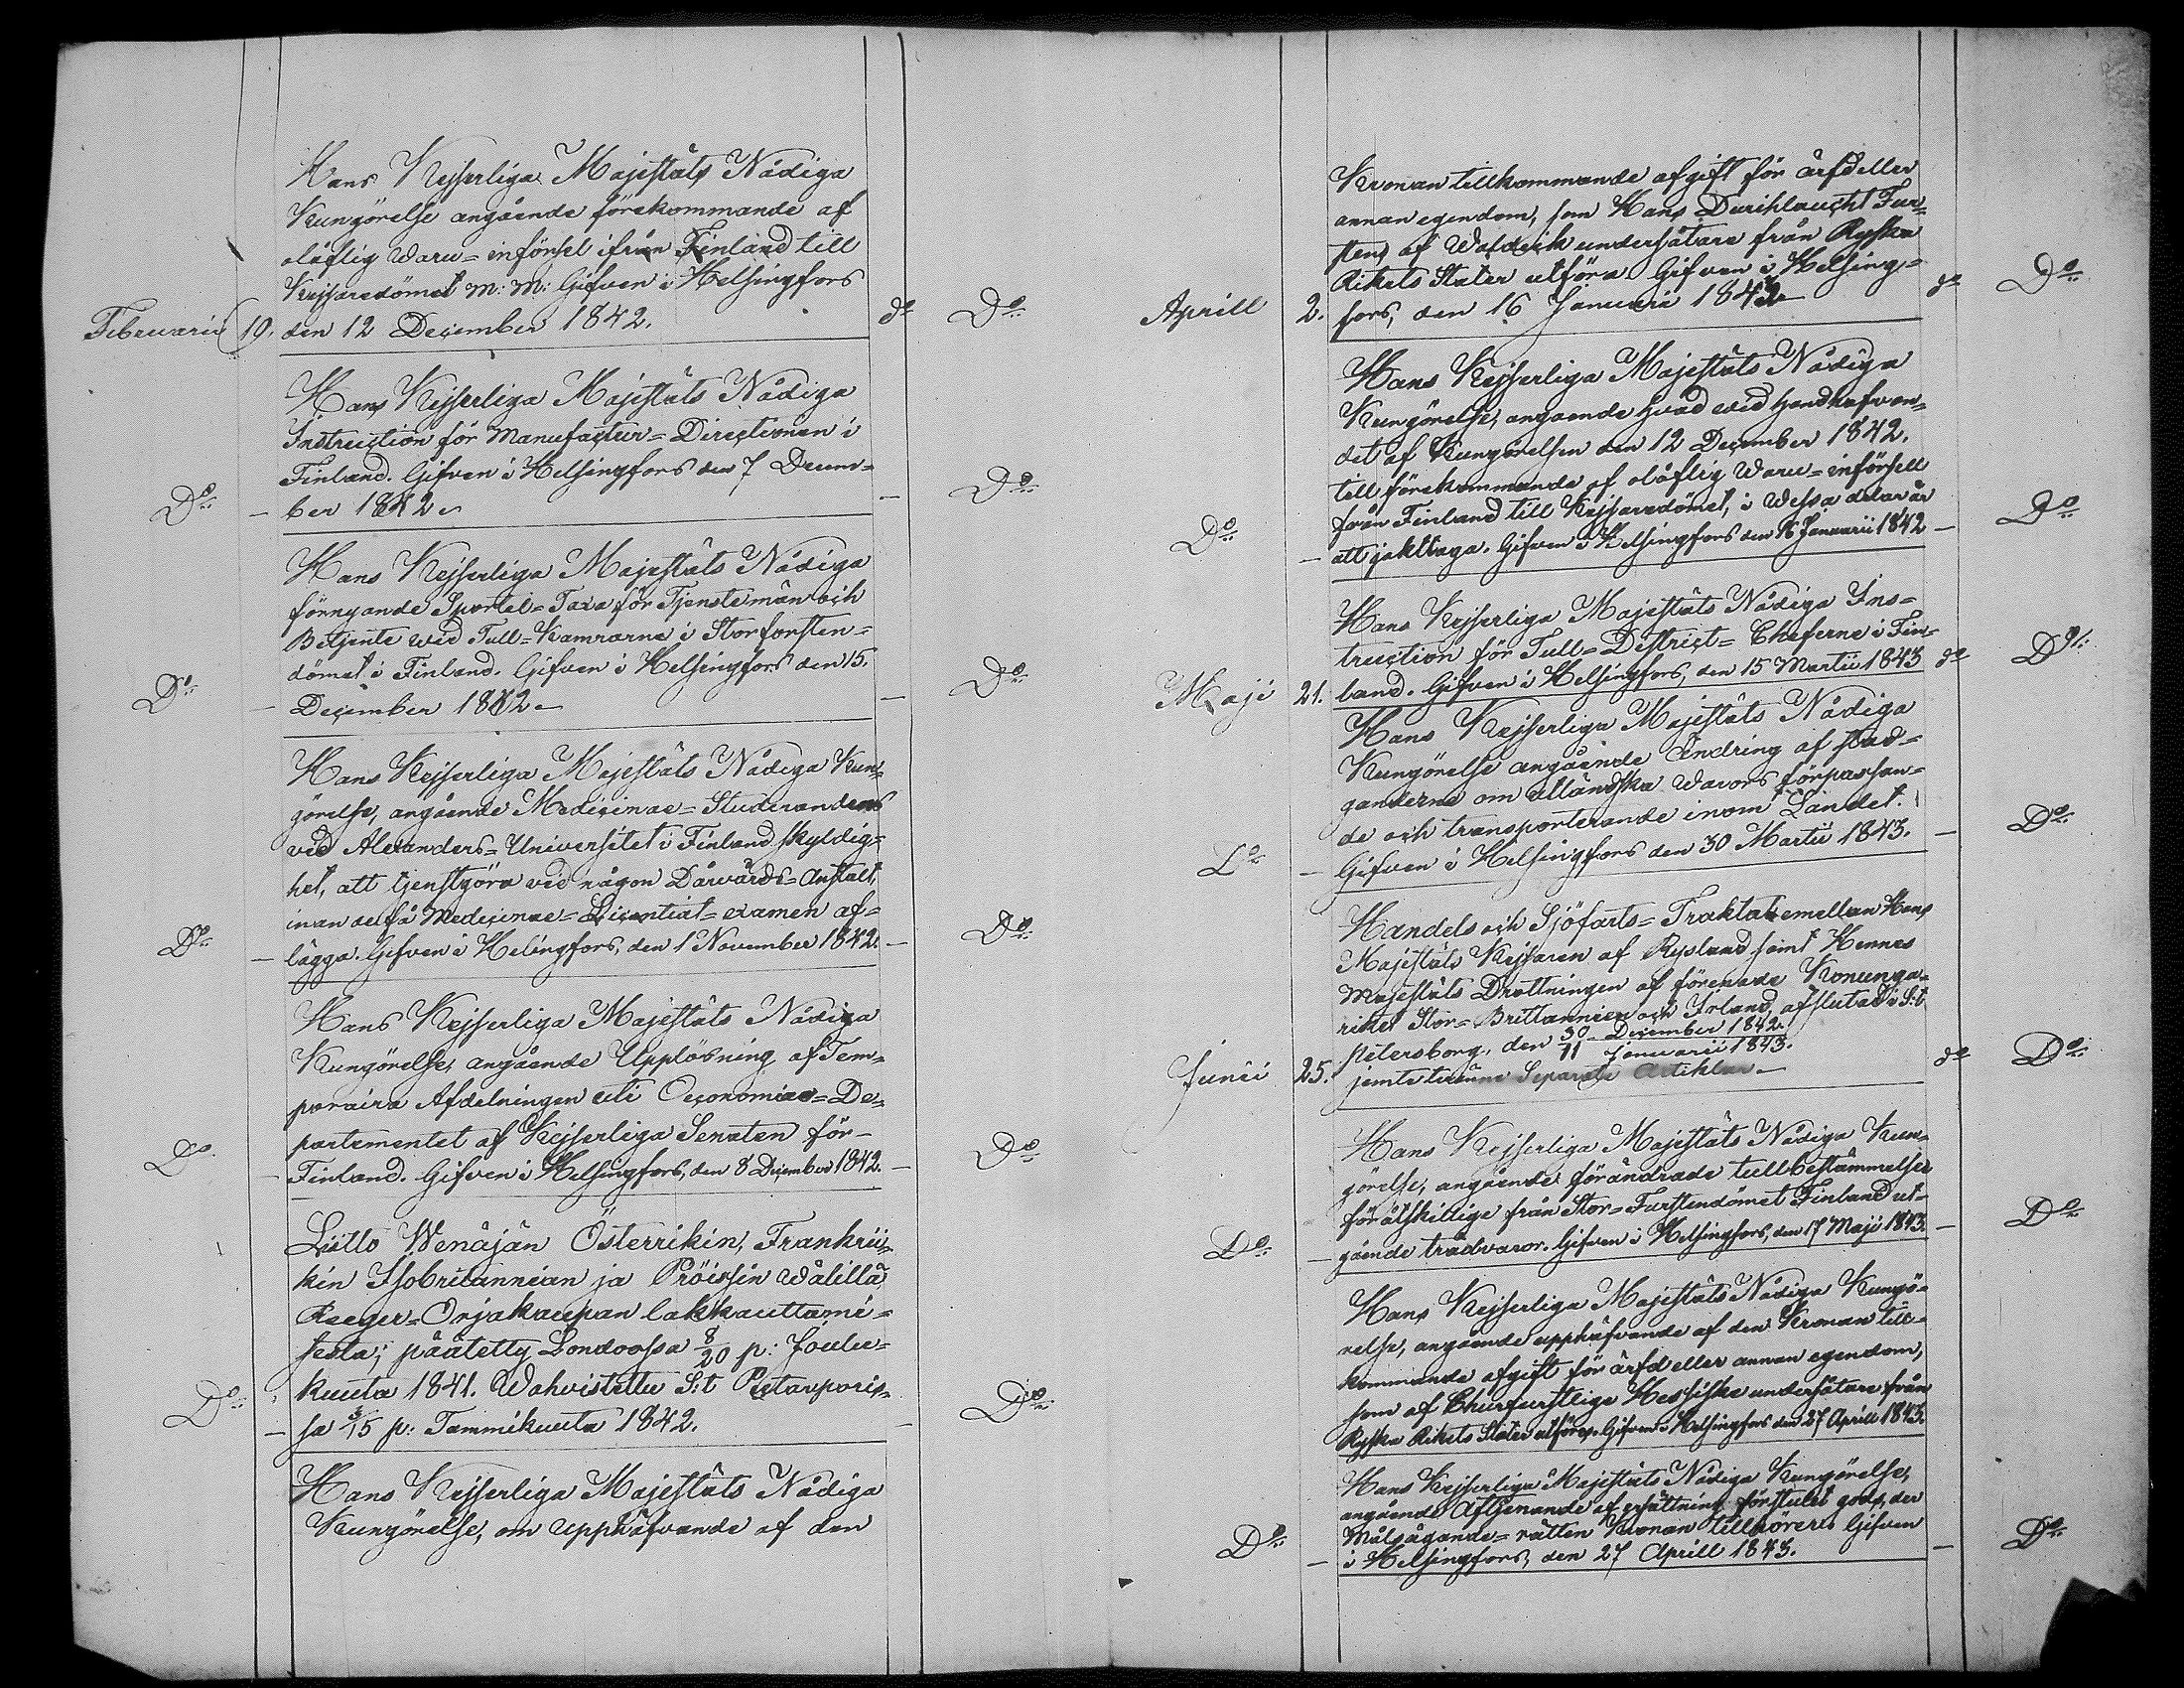 Hans Kejserliga Majestäts Nådiga
Kungörelse angående förekommande af
olåflig Waru=införsel ifrån Finland till
Kejsaredömet m: m: Gifven i Helsingfors
Februarii 19. den 12 December 1842. do Do
Hans Kejserliga Majestäts Nådiga
Instruction för Manufactur=Directionen i
Finland. Gifven i Helsingfors den 7 Decem=
Do — ber 1842. — Do
Hans Kejserliga Majestäts Nådiga
förnyande Sportel=Taxa för Tjenstemän och
Betjente wid Tull=Kamrarne i Storfursten=
dömet i Finland. Gifven i Helsingfors den 15.
Do — December 1842. — Do
Hans Kejserliga Majestäts Nådiga Kun=
görelse, angående Medicinae=Studerandens
ved Alexanders=Universitet i Finland skyldig=
het, att tjenstgöra ved någon Dårvårds=Anstalt,
innan de få Medicinae=Licentiat=examen af=
Do — lägga. Gifven i Helingfors, den 1 November 1842. — Do
Hans Kejserliga Majestäts Nådiga
Kungörelse, angående Upplösning af Tem=
poraira Afdelningen uti Oeconomiae=De=
partementet af Kejserliga Senaten för
Do — Finland. Gifven i Helsingfors, den 8 December 1842. — Do
Liitto Wenäjän Österrikin, Frankrii=
kin Isobritannian ja Pröissin wälillä
Neeger=Orjakaupan lakkauttami=
sesta; päätetty Londoossa 8/20 p: Joulu=
kuuta 1841. Wahvistettu S:t Pietarporis=
Do — sa 3/15 p: Tammikuuta 1842. — Do
Hans Kejserliga Majestäts Nådiga
Kungörelse, om upphäfvande af den
Kronan tillkommande afgift för ärfd eller
annan egendom, som Hans Durchlaucht Fur=
stens af Waldeck undersåtare från Ryska
Rikets Stater utföra. Gifven i Helsing=
Aprill 2. fors, den 16 Januari 1843. do Do
Hans Kejserliga Majestäts Nådiga
Kungörelse, angaende hvad wid handhafvan=
det af Kungörelsen den 12 December 1842.
till förekommande af olåflig Waru=införsell
från Finland till Kejsaredömet, i Wissa delar är
Do — att jakttaga. Gifven i Helsingfors den 16 Januarii 1842 — Do
Hans Kejserliga Majestäts Nådiga Ins=
truction för Tull=District=Cheferne i Fin=
Maji 21. land. Gifven i Helsingfors, den 15 Martii 1843 do Do
Hans Kejserliga Majestäts Nådiga
Kungörelse angående Ändring af stad=
ganderne om utländska Warors förpassan=
de och transporterande inom Landet.
Do — Gifven i Helsingfors den 30 Martii 1843. — Do
Handels och Sjöfarts=Traktat emellan Hans
Majestäts Kejsaren af Ryssland samt Hennes
Majestäts Drottningen af förenade Konunga=
riket Stor=Brittannien och Irland, afslutad i S:t
petersborg, den 30 December 1842./11 Januarii 1843.
Junii 25. jemte tvenne Separate Artiklar. do Do
Hans Kejserliga Majestäts Nådiga Kun=
görelse, angående förändrade tullbestämmelser
för åtskillige från Stor=Furstendömet Finland ut=
Do — gående trädvaror. Gifven i Helsingfors, den 17 Maji 1843. — Do
Hans Kejserliga Majestäts Nådiga Kungö=
relse, angående upphäfvande af den Kronan till=
kommande afgift för ärfd eller annan egendom,
som af Churfurstlige Hessiske undersåtare från
Ryska Rikets Stater utföres. Gifven i Helsingfors den 27 Aprill 1843.
Hans Kejserliga Majestäts Nådiga Kungörelse,
angående Aftjenande af ersättning för stulet gods, der
Målsägande=rätten Kronan tillhörer. Gifven
Do — i Helsingfors, den 27 Aprill 1843. — Do